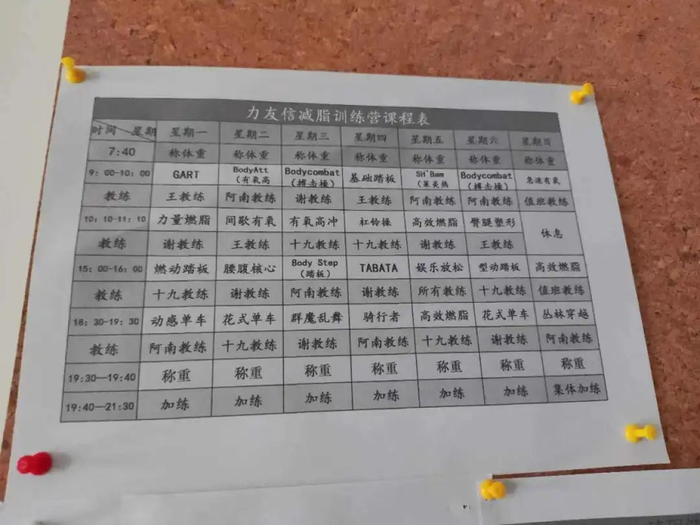 力友信减脂训练营课程表
时间 星期 星期一 星期二 星期三 星期四 星期五 星期六 星期日
7:40 称体重 称体重 称体重 称体重 称体重 称体重 称体重
9:00-10:00 GART BodyAtt (有氧高 Bodycombat (搏击操) 基础踏板 SH'Bam (莱美热 Bodycombat (搏击操) 急速有氧
教练 王教练 阿南教练 谢教练 王教练 阿南教练 阿南教练 值班教练
10:10-11:10 力量燃脂 间歇有氧 有氧高冲 杠铃操 高效燃脂 臀腿塑形 休息
教练 谢教练 王教练 十九教练 十九教练 谢教练 王教练
15:00-16:00 燃动踏板 腰腹核心 Body Step (踏板) TABATA 娱乐放松 型动踏板 高效燃脂
教练 十九教练 谢教练 阿南教练 谢教练 所有教练 十九教练 值班教练
18:30-19:30 动感单车 花式单车 群魔乱舞 骑行者 高效燃脂 花式单车 丛林穿越
教练 阿南教练 十九教练 谢教练 阿南教练 十九教练 谢教练 阿南教练
19:30—19:40 称重 称重 称重 称重 称重 称重 称重
19:40—21:30 加练 加练 加练 加练 加练 加练 集体加练